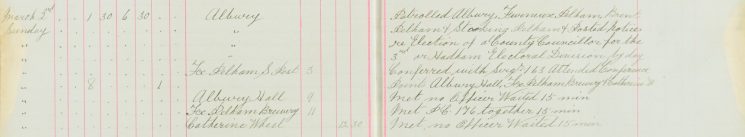 March 2nd 1 30 6 30 Albury Patrolled Albury, Furneux Pelham, Brent
Sunday " Pelham & Stocking Pelham & Posted Notices
" re Election of a County Councillor for the
" 3rd or Hadham Electoral Division by day
Fx Pelham S. Post 5 Conferred with Sergt 163 Attended Conference
8 1 Points Albury Hall, Fx Pelham Brewery
Albury Hall 9 Met no Officer Waited 15 min
Fx Pelham Brewery 11 Met P.C. 176 together 15 min
Catherine Wheel 12.30 Met no Officer Waited 15 min